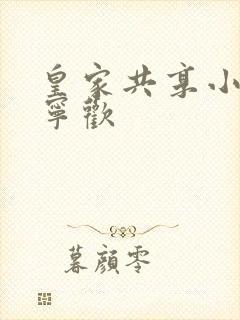 皇家共享小
寧歡
暮顏零